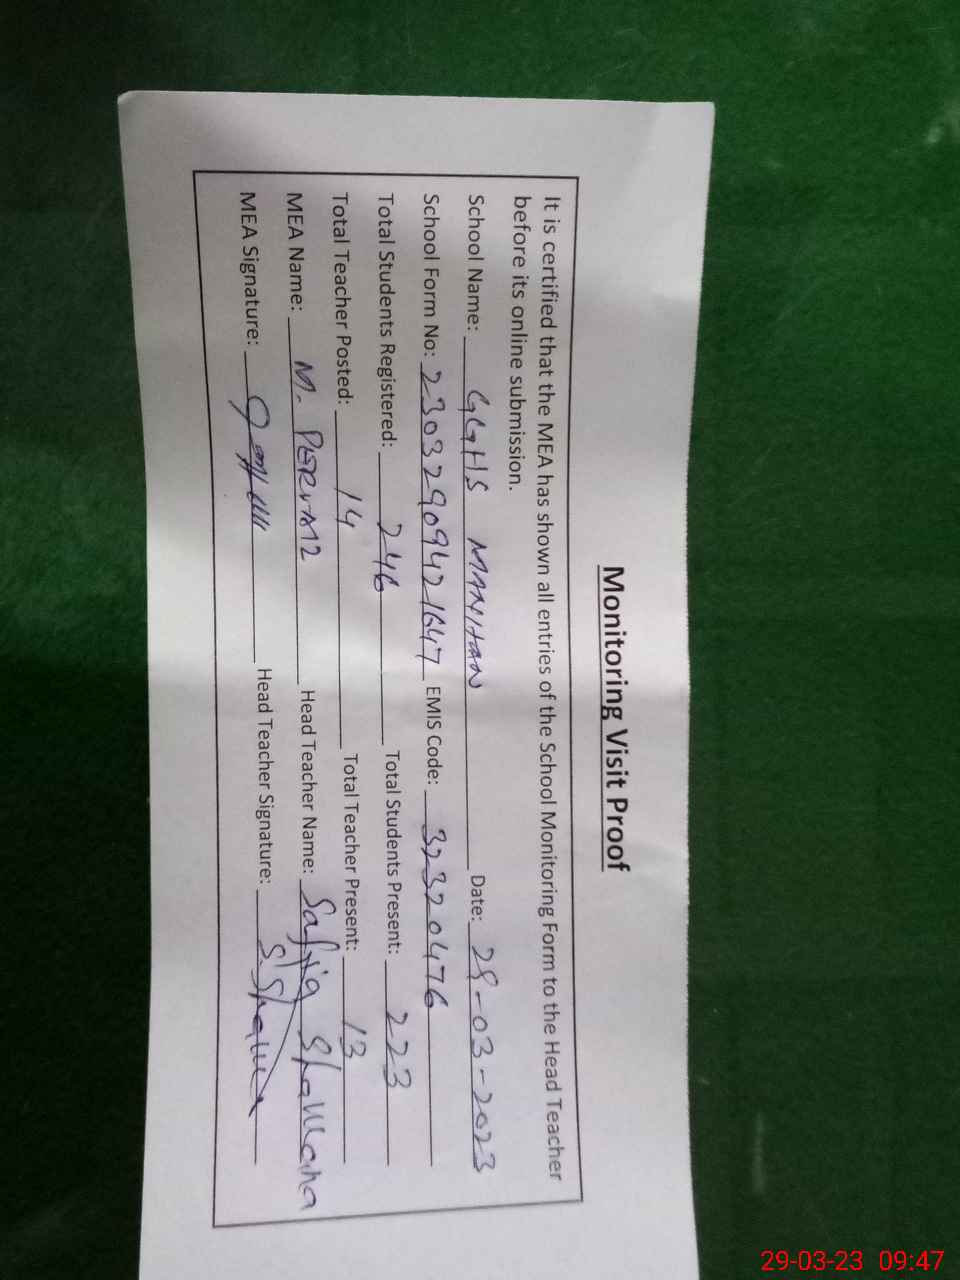 Monitoring Visit Proof
It is certified that the MEA has shown all entries of the School Monitoring Form to the Head Teacher
before its online submission.
School Name: GGHS MANIHAN Date: 29-03-2023
School Form No: 230329094421647 EMIS Code: 32320476
Total Students Registered: 246 Total Students Present: 223
Total Teacher Posted: 14 Total Teacher Present: 13
MEA Name: M. PERVAIZ Head Teacher Name: Safia Shawana
MEA Signature: Head Teacher Signature:
29-03-23 09:47